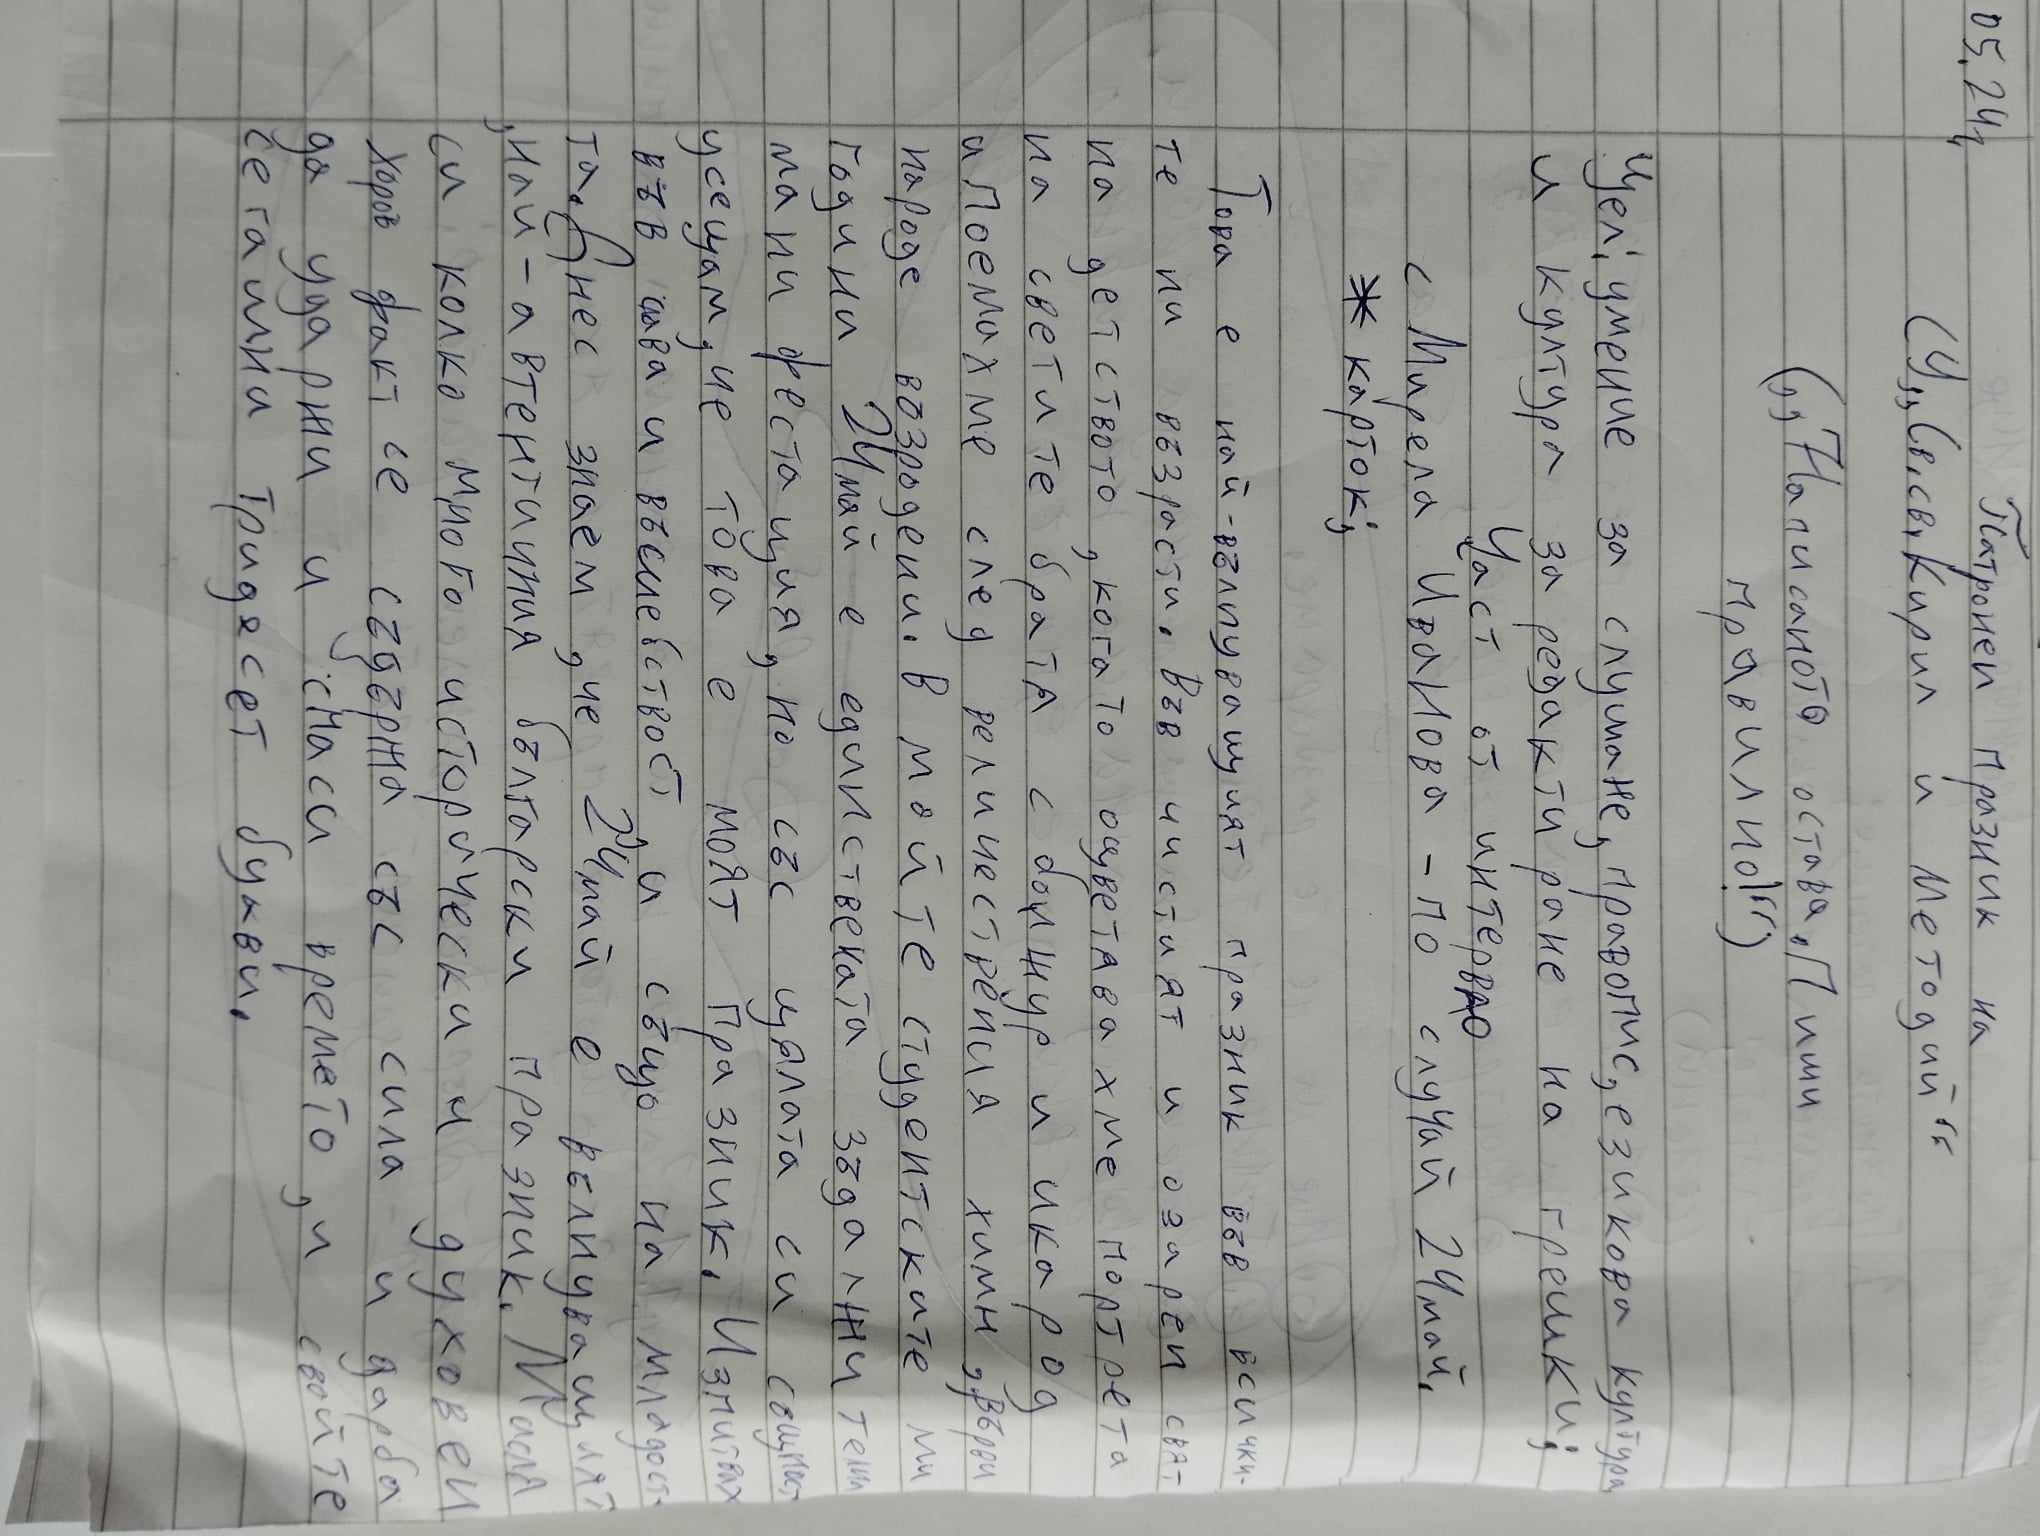 05.24г
Патронен празник на
(У„Св.св.Кирил и Методий“
(„Написаното остава. Пиши
правилно!“)
Цел: умение за слушане, правопис, езикова култура
и култура за редактиране на грешки;
Част от интервю
с Мирела Иванова - по случай 24май.
* карток;
Това е най-вълнуващият празник във всички-
те ни възрасти. Във чистият и озарен свят
на детството, когато оцветавахме портрета
на светите братя с божур и ика род
и поемахме след величествения химн, „Върви
народе възродени. В мойте студентските ми
години 24май е единствената задължителн
манифестация, но със цялата си същност
усещам, че това е моят празник. Изпитвах
във плава и вълшебствот, и също на младост-
та. Днес знаем, че 24май е вълнуващият
, Най-автентичния български празник. Мисля
си колко много исторически и духовен
хоров факт се съдържа със сила и дарба
да удържи и смаси времето, и свойте
сегашни тридесет букви.